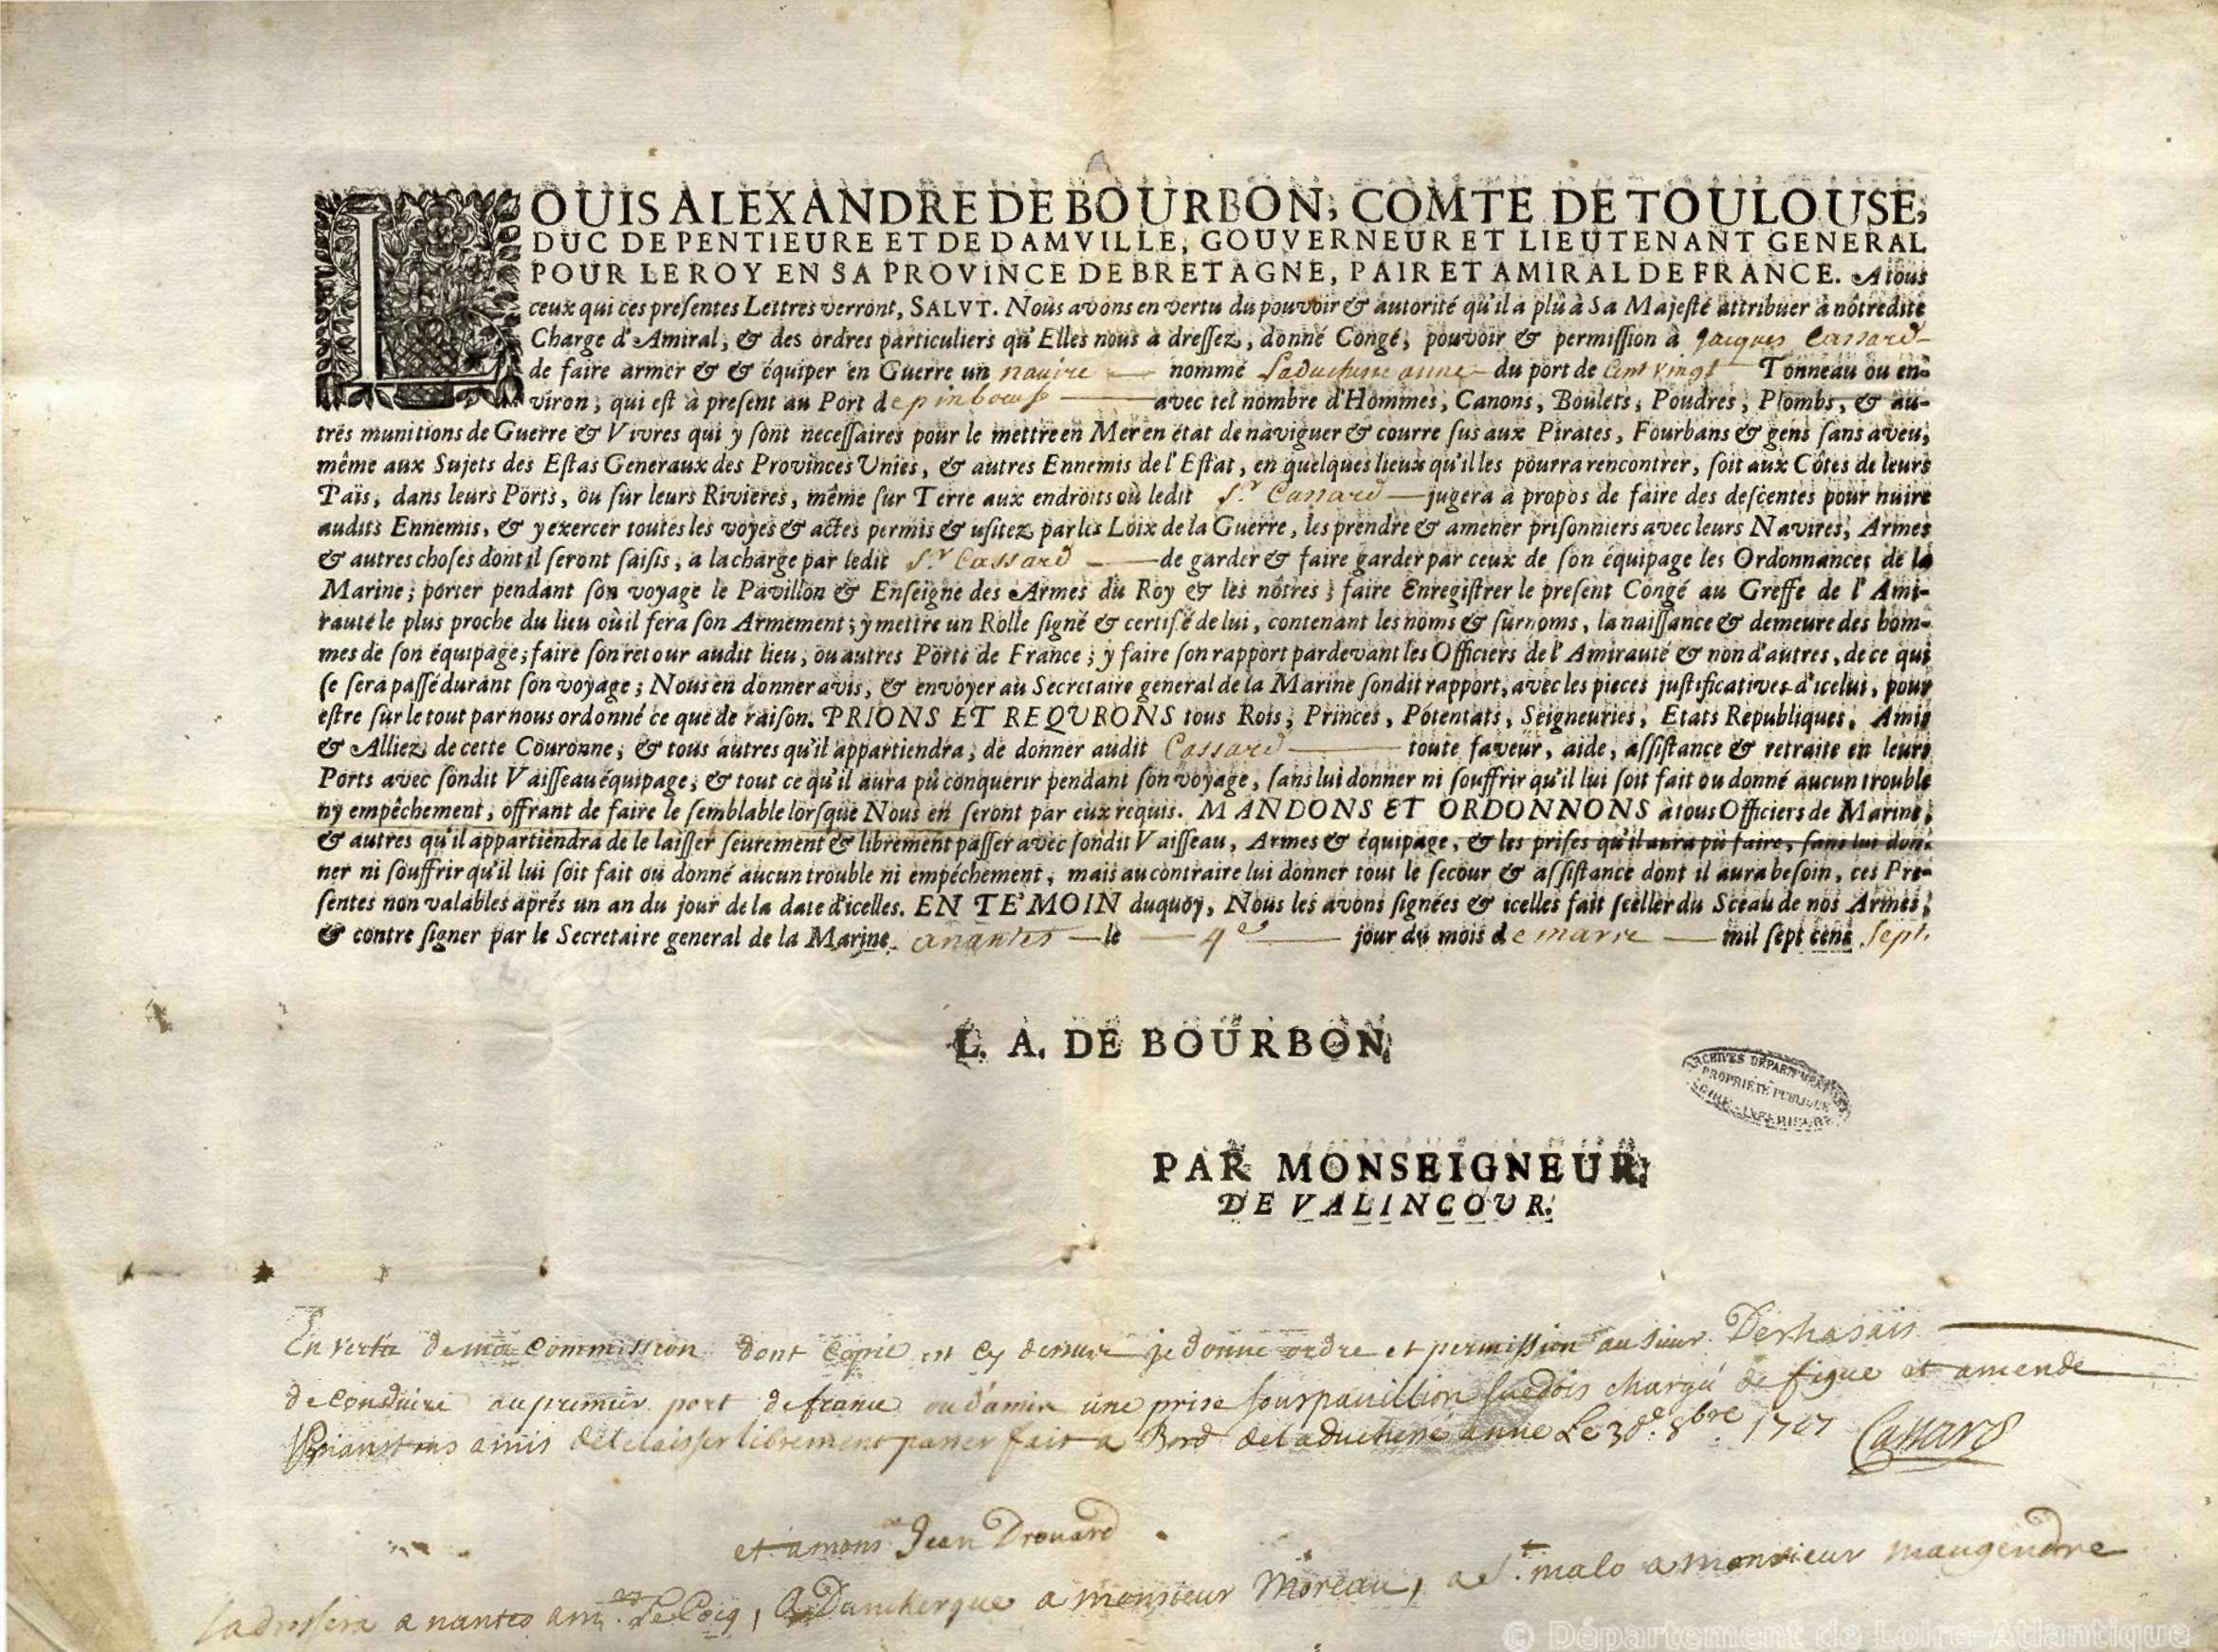 LOUIS ALEXANDRE DE BOURBON, COMTE DE TOULOUSE,
DUC DE PENTIEURE ET DE DAMVILLE, GOUVERNEUR ET LIEUTENANT GENERAL
POUR LE ROY EN SA PROVINCE DE BRETAGNE, PAIR ET AMIRAL DE FRANCE. A tous
ceux qui ces presentes Lettres verront, SALVT. Nous avons en vertu du pouvoir & autorité qu'il a plû à Sa Majesté attribuer à nôtredite
Charge d'Amiral, & des ordres particuliers qu'Elles nous à dressez, donné Congé, pouvoir & permission à Jacques Cassard
de faire armer & & équiper en Guerre un navire nommé Laduchesse anne du port de Cent vingt Tonneau ou en-
viron, qui est à present au Port de pinboeuf avec tel nombre d'Hommes, Canons, Boulets, Poudres, Plombs, & au-
tres munitions de Guerre & Vivres qui y sont necessaires pour le mettre en Mer en état de naviguer & courre sus aux Pirates, Fourbans & gens sans aveu,
même aux Sujets des Estas Generaux des Provinces Unies, & autres Ennemis de l'Estat, en quelques lieux qu'il les pourra rencontrer, soit aux Côtes de leurs
Païs, dans leurs Ports, ou sur leurs Rivieres, même sur Terre aux endroits où ledit Sr. Cassard jugera à propos de faire des descentes pour nuire
audits Ennemis, & y exercer toutes les voyes & actes permis & usitez par les Loix de la Guerre, les prendre & amener prisonniers avec leurs Navires, Armes
& autres choses dont il seront saisis, a la charge par ledit Sr. Cassard de garder & faire garder par ceux de son équipage les Ordonnances de la
Marine; porter pendant son voyage le Pavillon & Enseigne des Armes du Roy & les nôtres; faire Enregistrer le present Congé au Greffe de l'Ami-
rauté le plus proche du lieu où il fera son Armement; y mettre un Rolle signé & certifé de lui, contenant les noms & surnoms, la naissance & demeure des hom-
mes de son équipage; faire son retour audit lieu, ou autres Ports de France; y faire son rapport pardevant les Officiers de l'Amirauté & non d'autres, de ce qui
se sera passé durant son voyage; Nous en donner avis, & envoyer au Secretaire general de la Marine sondit rapport, avec les pieces justificatives d'icelui, pour
estre sur le tout par nous ordonné ce que de raison. PRIONS ET REQURONS tous Rois, Princes, Potentats, Seigneuries, Etats Republiques, Amis
& Alliez de cette Couronne, & tous autres qu'il appartiendra, de donner audit Cassard toute faveur, aide, assistance & retraite en leurs
Ports avec sondit Vaisseau équipage, & tout ce qu'il aura pû conquerir pendant son voyage, sans lui donner ni souffrir qu'il lui soit fait ou donné aucun trouble
ny empêchement, offrant de faire le semblable lorsque Nous en seront par eux requis. MANDONS ET ORDONNONS à tous Officiers de Marine,
& autres qu'il appartiendra de le laisser seurement & librement passer avec sondit Vaisseau, Armes & équipage, & les prises qu'il aura pû faire, sans lui don-
ner ni souffrir qu'il lui soit fait ou donné aucun trouble ni empéchement, mais au contraire lui donner tout le secour & assistance dont il aura besoin, ces Pre-
sentes non valables aprés un an du jour de la date d'icelles. EN TE'MOIN duquoy, Nous les avons signées & icelles fait sceller du Sceau de nos Armes,
& contre signer par le Secretaire general de la Marine. a nantes le 4e jour du mois de mars mil sept cens sept.
L. A. DE BOURBON,
ARCHIVES DEPARTEMENTALES
PROPRIETE PUBLIQUE
LOIRE-INFERIEURE
PAR MONSEIGNEUR,
DE VALINCOUR.
En vertu de ma Commission dont Copie est Cy dessus je donne ordre et permission au sieur Deshasais
de Conduire au premier port de france ou damis une prise sous pavillion suedois chargé de figue et amende
priant tous amis de le laisser librement passer fait a Bord de la duchesse anne Le 30e. 8bre 1707 Cassard
et a monsr Jean Drouard
Sadressera a nantes a mr. Le Coiq, a Dunkerque a monsieur Moreau, a St. malo a monsieur maugendre
© Département de Loire-Atlantique